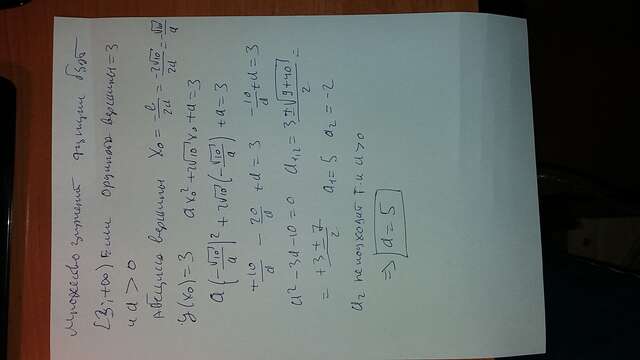 Множество значений функции будет
[3; +∞) Если ордината вершины = 3
и a > 0
Абсцисса вершины x₀ = -b/2a = -2√10/2a = -√10/a
y(x₀) = 3 ax₀² + 2√10 x₀ + a = 3
a(-√10/a)² + 2√10(-√10/a) + a = 3
+10/a - 20/a + a = 3 -10/a + a = 3
a² - 3a - 10 = 0 a₁,₂ = 3 ± √(9 + 40)/2 =
= +3 ± 7/2 a₁ = 5 a₂ = -2
a₂ не подходит т.к a > 0
⇒ a = 5